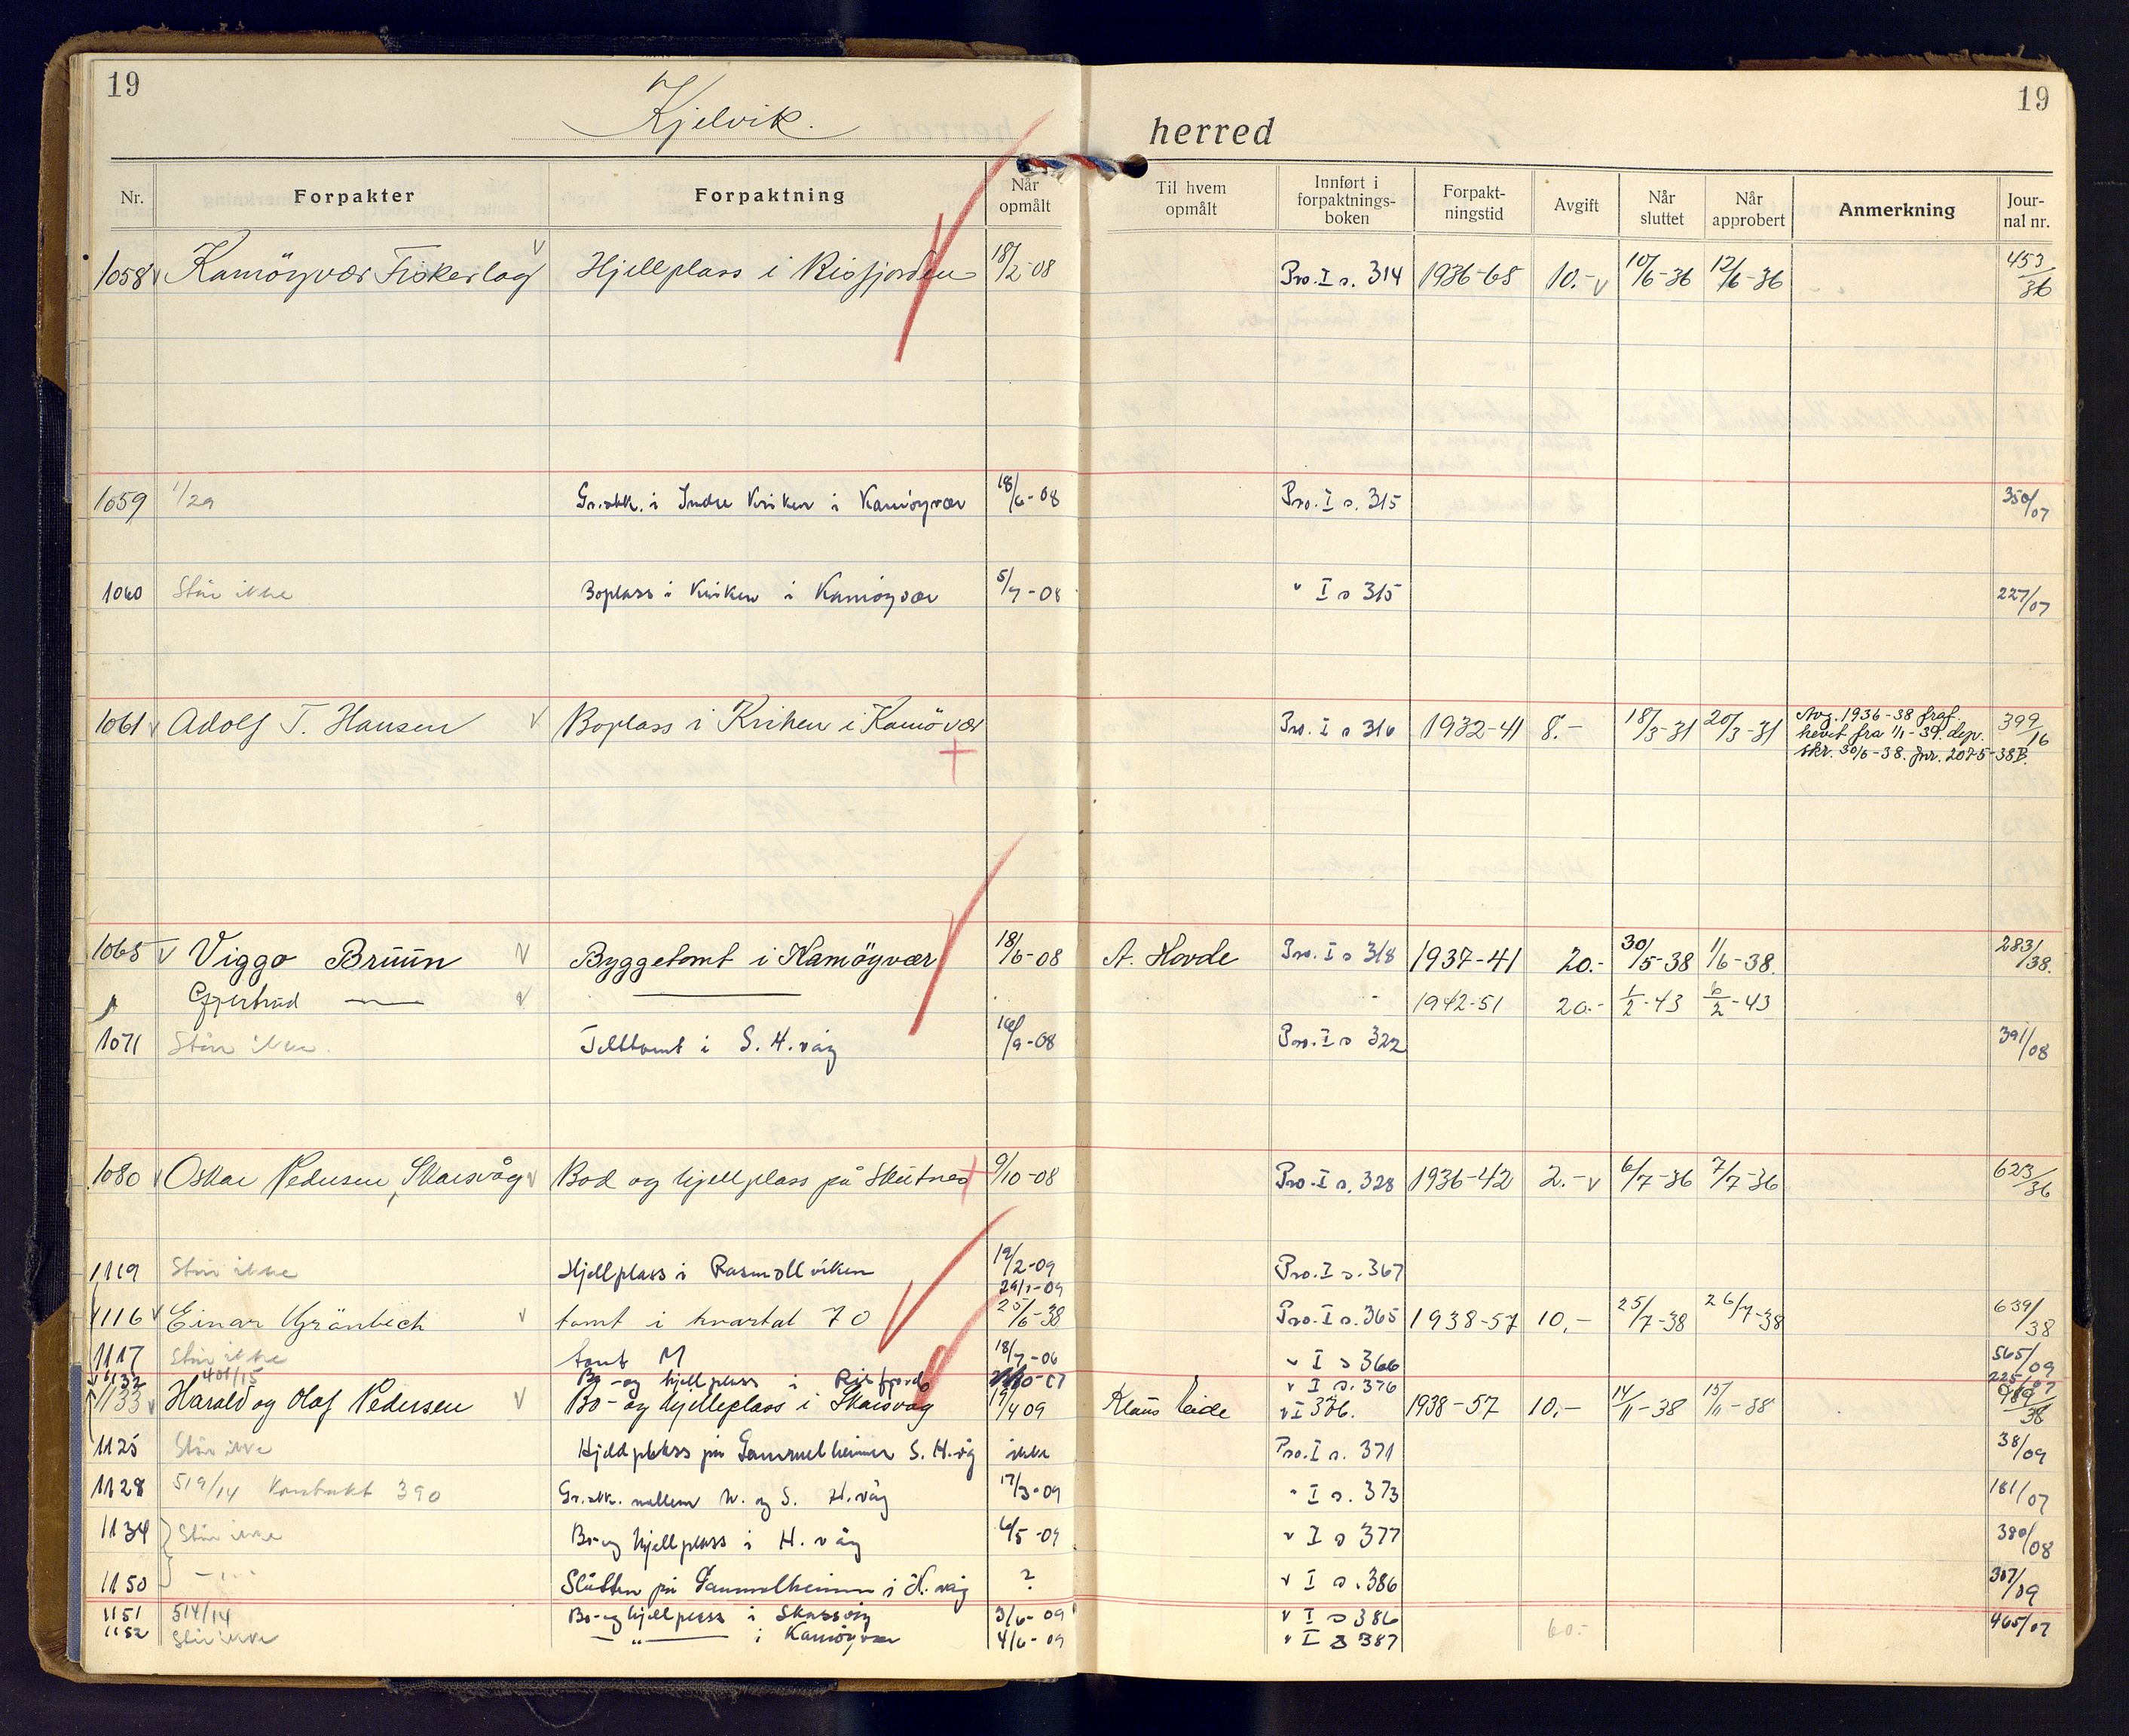 19
19
Kjelvik.
herred
Nr. Forpakter Forpaktning Når opmålt Til hvem opmålt Innført i forpaktnings-boken Forpakt-ningstid Avgift Når sluttet Når approbert Anmerkning Jour-nal nr.
1058 v Kamöyvær Fiskerlag v Hjellplass i Risfjorden 18/2-08 Pro. I s. 314 1936-65 10.- v 10/6-36 12/6-36 453/36
1059 1/29 Gr.stk. i Indre Kriken i Kamöyvær 18/6-08 Pro. I s. 315 350/07
1060 Står ikke Boplass i Kriken i Kamöyvær 5/7-08 " I s 315 227/07
1061 v Adolf T. Hansen v Boplass i Kriken i Kamövær Pro. I s 316 1932-41 8.- 18/3-31 20/3-31 Avg. 1936-38 fraf. 399/16
hevet fra 1/1-39. dep.
skr. 30/6-38. jnr. 2075-38B.
1065 v Viggo Bruun v Byggetomt i Kamöyvær 18/6-08 A. Hovde Pro. I s 318 1937-41 20.- 30/5-38 1/6-38. 283/38.
Gjertrud — v — 1942-51 20.- 1/2-43 6/2-43
1071 Står ikke. Telttomt i S. H.våg 16/9-08 Pro. I s 322 391/08
1080 v Oskar Pedersen, Skarsvåg v Bod og hjellplass på Skutnes 9/10-08 Pro. I s. 328 1936-42 2.- v 6/7-36 7/7-36 623/36
1119 Står ikke Hjellplass i Rasmollviken 19/2-09 Pro. I s. 367
29/1-09
1116 v Einar Grönbech v tomt i kvartal 70 25/6-38 Pro. I s. 365 1938-57 10.- 25/7-38 26/7-38 639/38
1117 Står ikke tomt M 18/7-06 " I s 366 565/09
1132 401/15 Bo- og hjellplass i Risfjord " I s. 376 225/07
1133 v Harald og Olaf Pedersen v Bo- og hjelleplass i Skarsvåg 19/4 09 Klaus Eide " I 376. 1938-57 10.- 14/11-38 15/11-38 989/38
1125 Står ikke Hjellplass på Gammelheimen S. H.våg ikke Pro. I s. 371 38/09
1128 519/14 Kontrakt 390 Gr.stk. mellem N. og S. H.våg 17/3-09 " I s. 373 181/07
1134 Står ikke Bo-og hjellplass i H. våg 6/5-09 " I s 377 380/08
1150 — " — Slåtten på Gammelheimen i H. våg ? " I s. 386 307/09
1151 514/14 Bo-og hjellplass i Skarsvåg 3/6-09 " I s 386 465/07
1152 Står ikke — " — i Kamöyvær 4/6-09 " I s 387 60.-